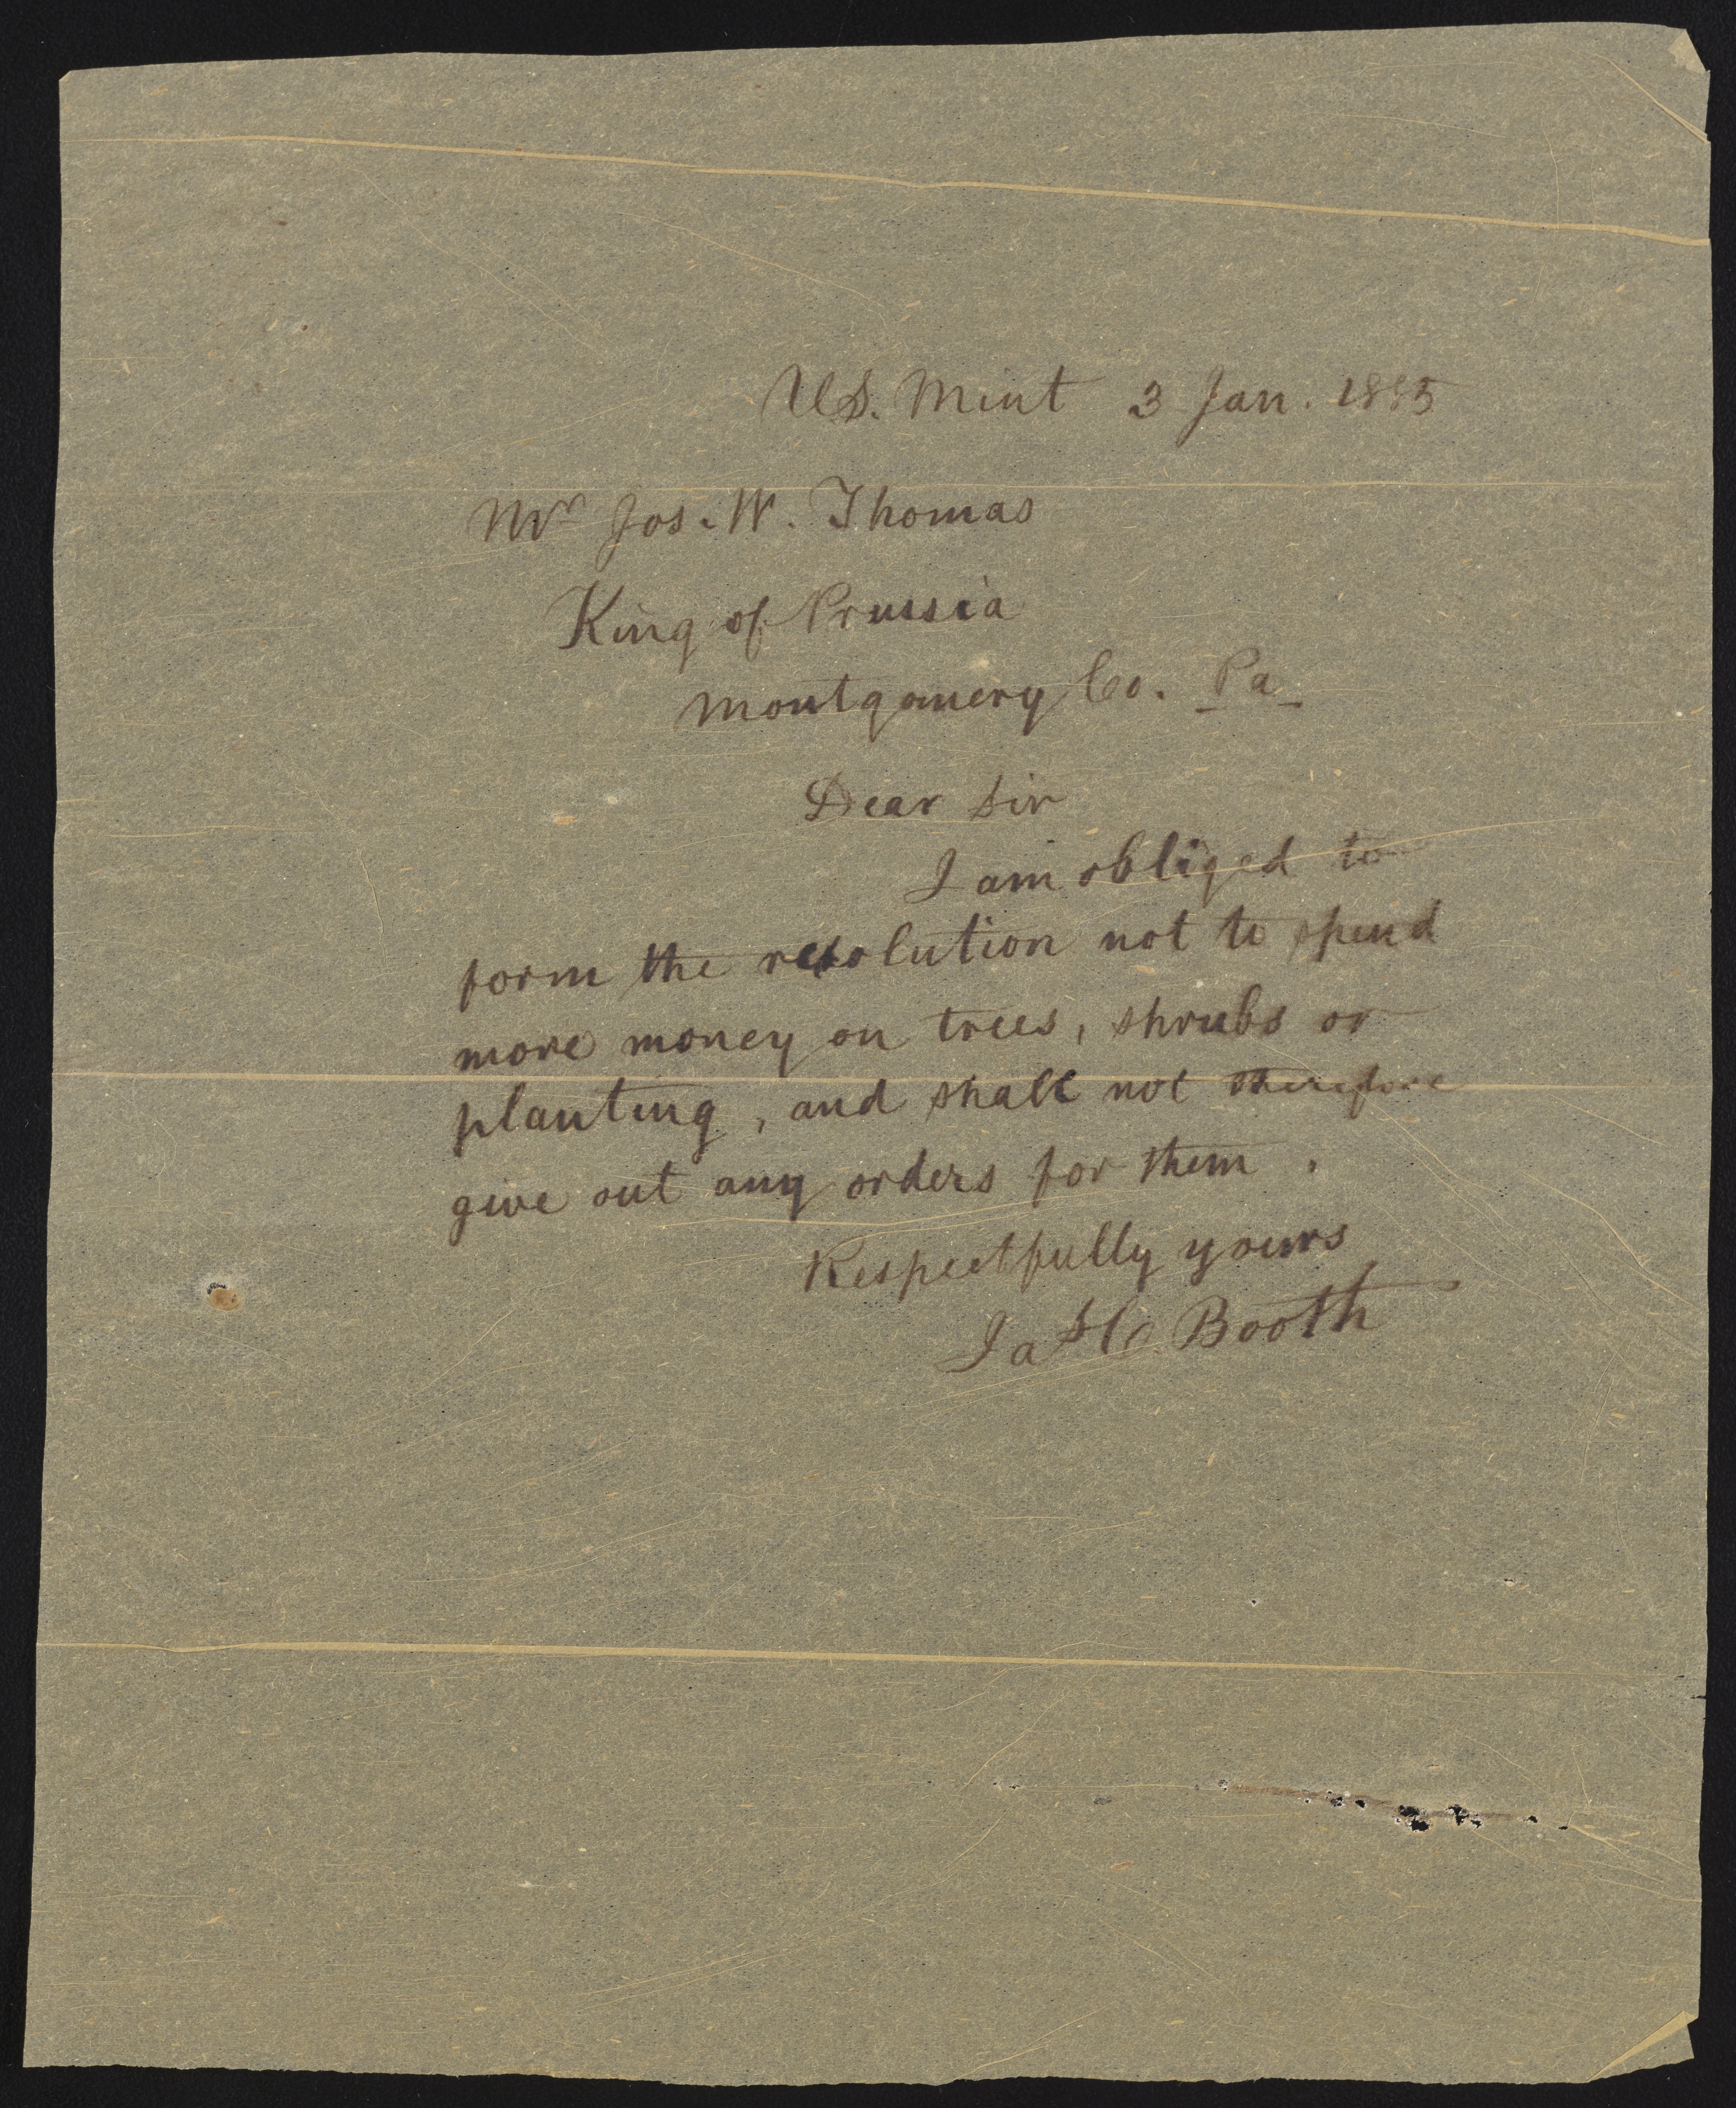 U.S. Mint 3 Jan. 1885
Mr Jos. W. Thomas
King of Prussia
Montgomery Co. Pa
Dear Sir
I am obliged to
form the resolution not to spend
more money on trees, shrubs or
planting, and shall not therefore
give out any orders for them.
Respectfully yours
Jas C. Booth